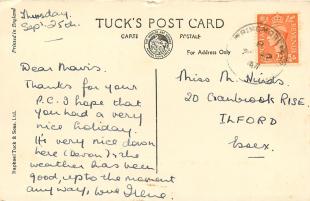 Thursday,
Sept. 25th.
TUCK'S POST CARD
CARTE POSTALE
For Address Only
Printed in England
Raphael Tuck & Sons, Ltd.
Dear Mavis.
Thanks for your
P.C. I hope that
you had a very
nice holiday.
It's very nice down
here (Devon) & the
weather has been
good, up to the moment
any way, love Irene.
Miss M. Hinds.
20 Cranbrook RISE.
ILFORD
Essex.